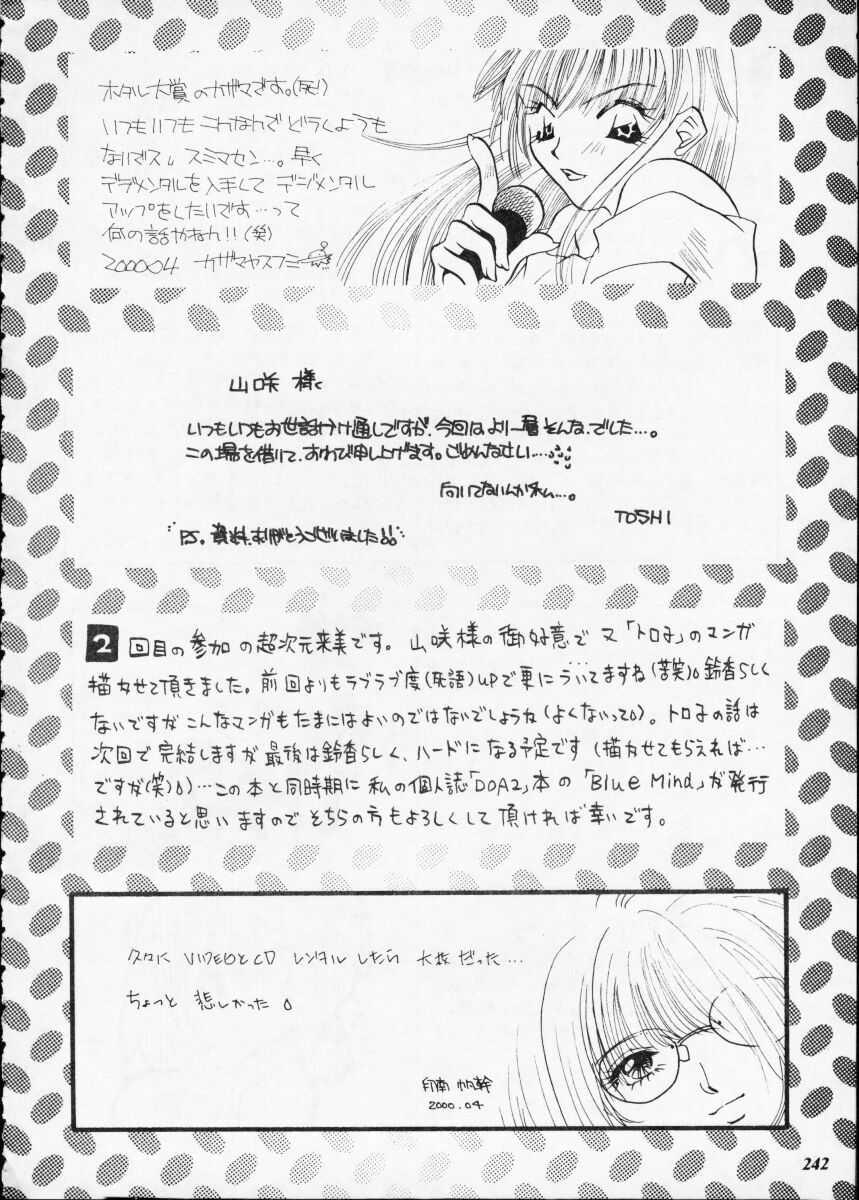 ホタル大賞のカザマです。(死)
いつもいつもこんなんでどうしようも
ないデス。スミマセン…。早く
デジメンタルを入手して デジメンタル
アップをしたいです…って
何の話やねん!!(笑)
200004 カザマヤスフミ
山咲 様
いつもいつもお世話かけ通しですが、今回はより一層そんな、でした…。
この場を借りて、おわび申し上げます。ごめんなさい…
向いてないんかねん…。
TOSHI
P.S. 資料、ありがとうございました!!
2回目の参加の超次元来美です。山咲様の御好意で又「トロ子」のマンガ
描かせて頂きました。前回よりもラブラブ度(死語)UPで更にういてますね(苦笑)。鈴香らしく
ないですがこんなマンガもたまにはよいのではないでしょうね(よくないって)。トロ子の話は
次回で完結しますが最後は鈴香らしく、ハードになる予定です(描かせてもらえれば…
ですが(笑))…この本と同時期に私の個人誌「DOA2」本の「Blue Mind」が発行
されていると思いますのでそちらの方もよろしくして頂ければ幸いです。
久々に VIDEOとCD レンタルしたら 大抵だった…
ちょっと 悲しかった
印南 帆幹
2000.04
242